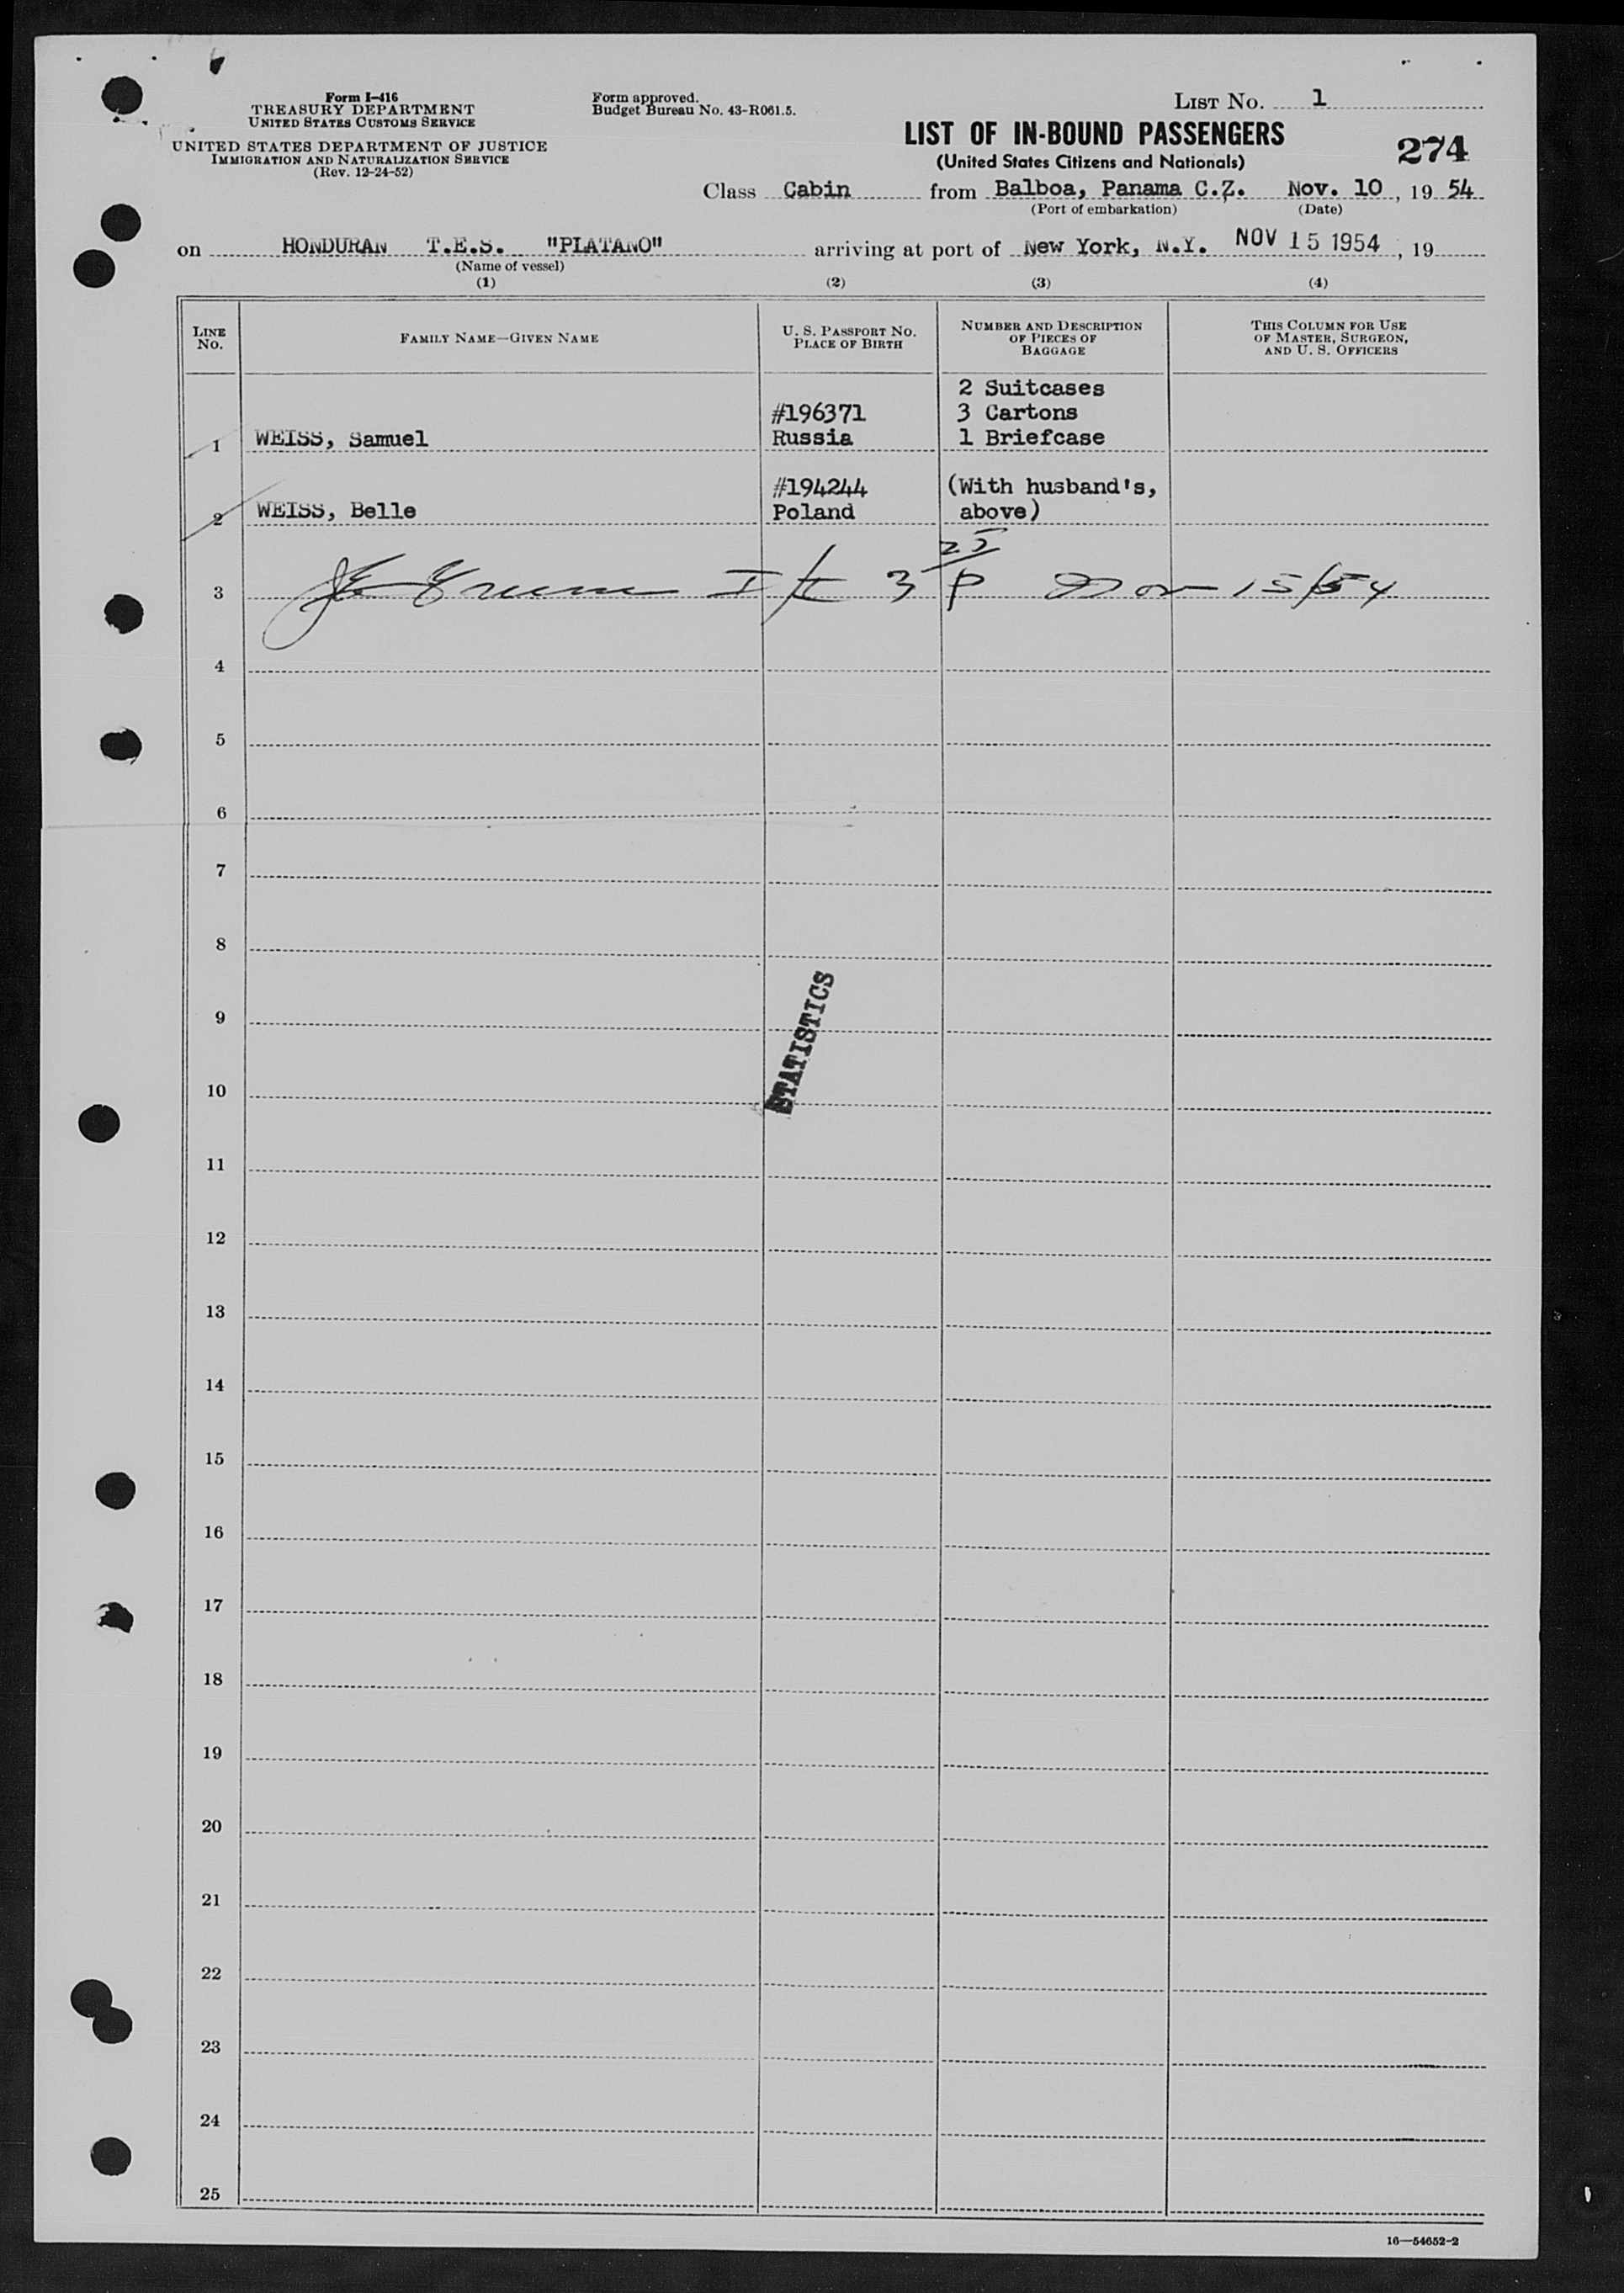 Form I-416
TREASURY DEPARTMENT
UNITED STATES CUSTOMS SERVICE
UNITED STATES DEPARTMENT OF JUSTICE
IMMIGRATION AND NATURALIZATION SERVICE
(Rev. 12-24-52)
Form approved.
Budget Bureau No. 43-R061.5.
LIST No. 1
LIST OF IN-BOUND PASSENGERS
(United States Citizens and Nationals)
274
Class Cabin from Balboa, Panama C.Z. Nov. 10, 19 54
(Port of embarkation) (Date)
on HONDURAN T.E.S. "PLATANO" arriving at port of New York, N.Y. NOV 15 1954, 19
(Name of vessel)
(1) (2) (3) (4)
LINE No. FAMILY NAME—GIVEN NAME U. S. PASSPORT No. PLACE OF BIRTH NUMBER AND DESCRIPTION OF PIECES OF BAGGAGE THIS COLUMN FOR USE OF MASTER, SURGEON, AND U. S. OFFICERS
2 Suitcases
#196371 3 Cartons
1 WEISS, Samuel Russia 1 Briefcase
#194244 (With husband's,
2 WEISS, Belle Poland above)
3 3 25 P Nov 15/54
4
5
6
7
8
9
STATISTICS
10
11
12
13
14
15
16
17
18
19
20
21
22
23
24
25
16—54652-2